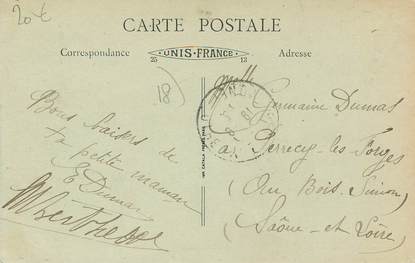 20€
CARTE POSTALE
Correspondance
UNIS-FRANCE
25 13
Adresse
18
Mlle
Germaine Dumas
a Perrecy-les-Forges
(Au Bois Simon)
(Saône-et-Loire)
Bons baisers de
ta petite maman
E Dumas